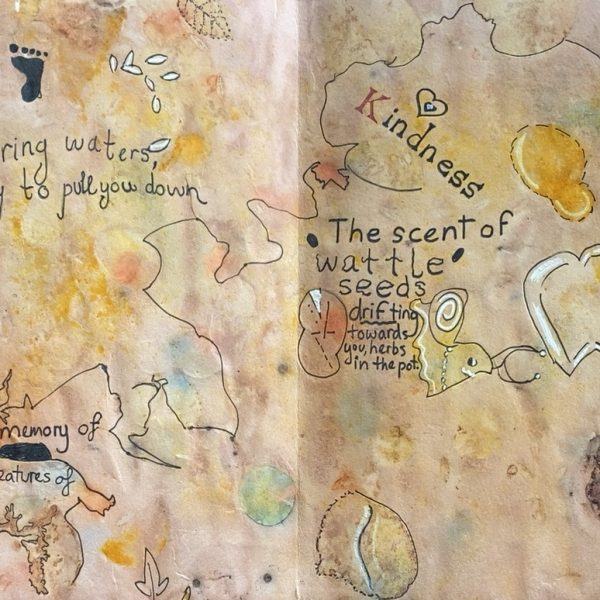 ring waters,
to pull you down
memory of
eatures of
Kindness
The scent of
wattle
seeds
drifting
towards
you, herbs
in the pot.